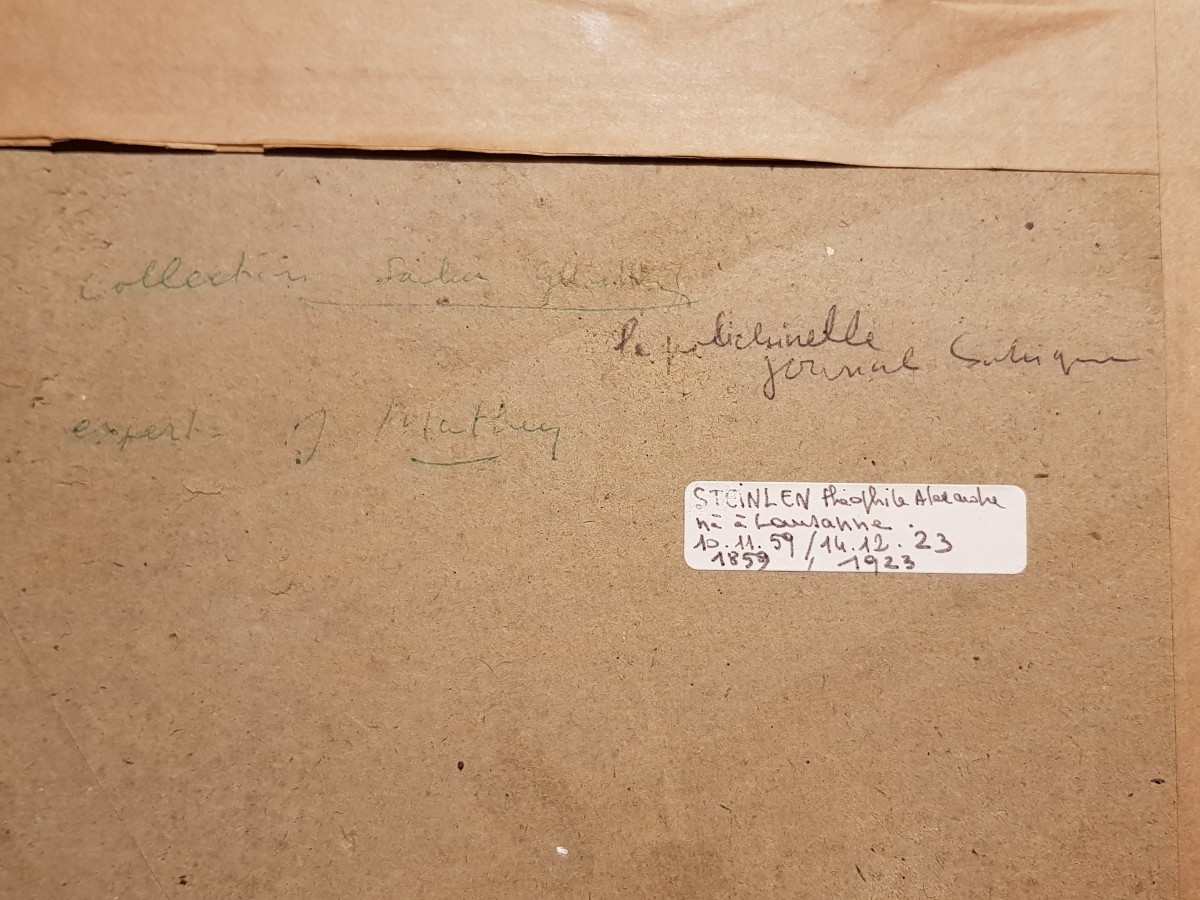 collection
le polichinelle
journal Satirique
expert J Mathey
STEINLEN théophile Alexandre
né à Lausanne.
10.11.59/14.12.23
1859 / 1923